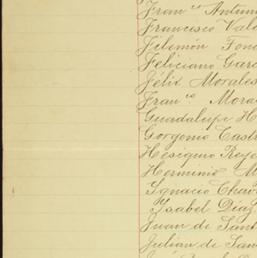 Fran.co Antoni
Francisco Vale
Filemón Fon
Feliciano Garc
Félix Morales
Fran.co Mora
Guadalupe H
Gorgonio Cast
Hesiquio Reye
Herminio M
Ignacio Cher
Ysabel Díaz
Juan de Sant
Julian de San